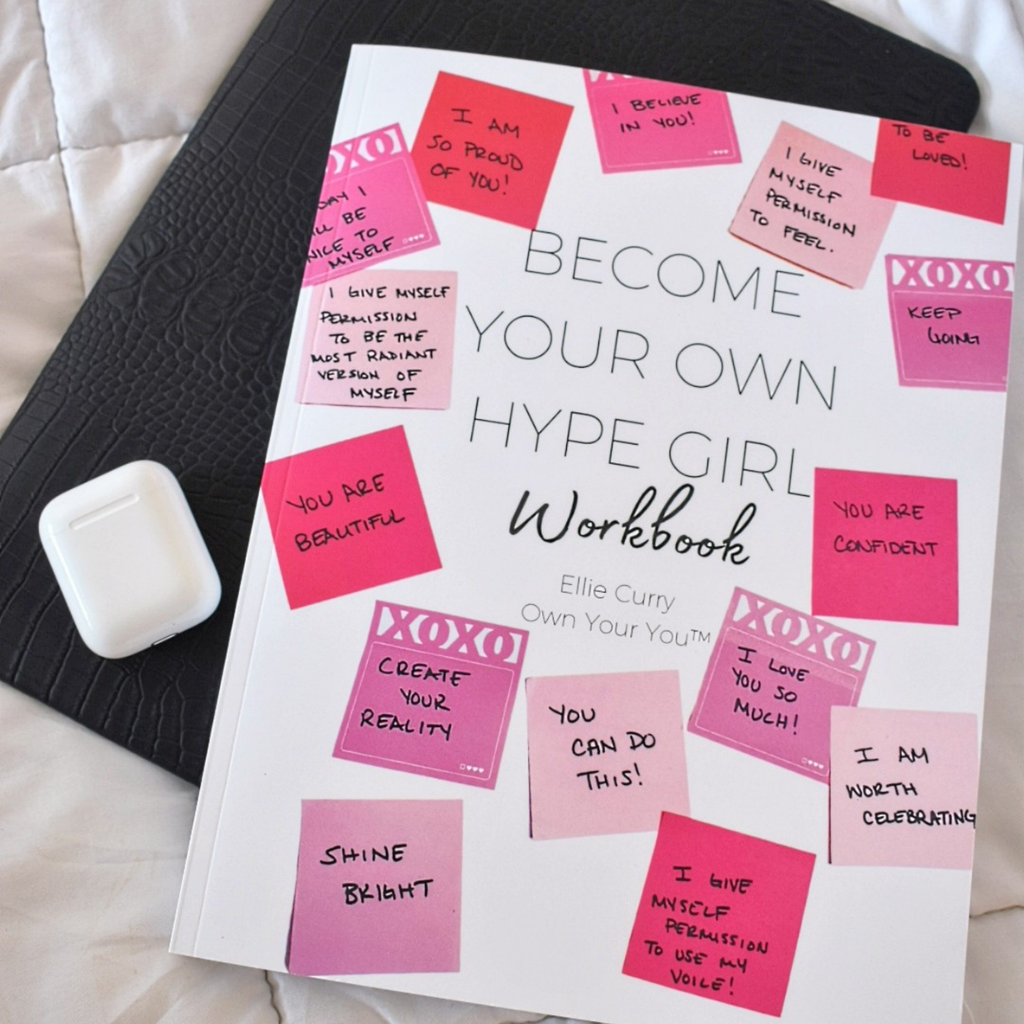 I AM
SO PROUD
OF YOU!
I BELIEVE
IN YOU!
I GIVE
MYSELF
PERMISSION
TO FEEL.
TO BE
LOVED!
XOXO
I
BE
NICE TO
MYSELF
I GIVE MYSELF
PERMISSION
TO BE THE
MOST RADIANT
VERSION OF
MYSELF
XOXO
KEEP
GOING
BECOME
YOUR OWN
HYPE GIRL
Workbook
Ellie Curry
Own Your You™
YOU ARE
BEAUTIFUL
YOU ARE
CONFIDENT
XOXO
CREATE
YOUR
REALITY
YOU
CAN DO
THIS!
XOXO
I LOVE
YOU SO
MUCH!
I AM
WORTH
CELEBRATING
SHINE
BRIGHT
I GIVE
MYSELF
PERMISSION
TO USE MY
VOICE!